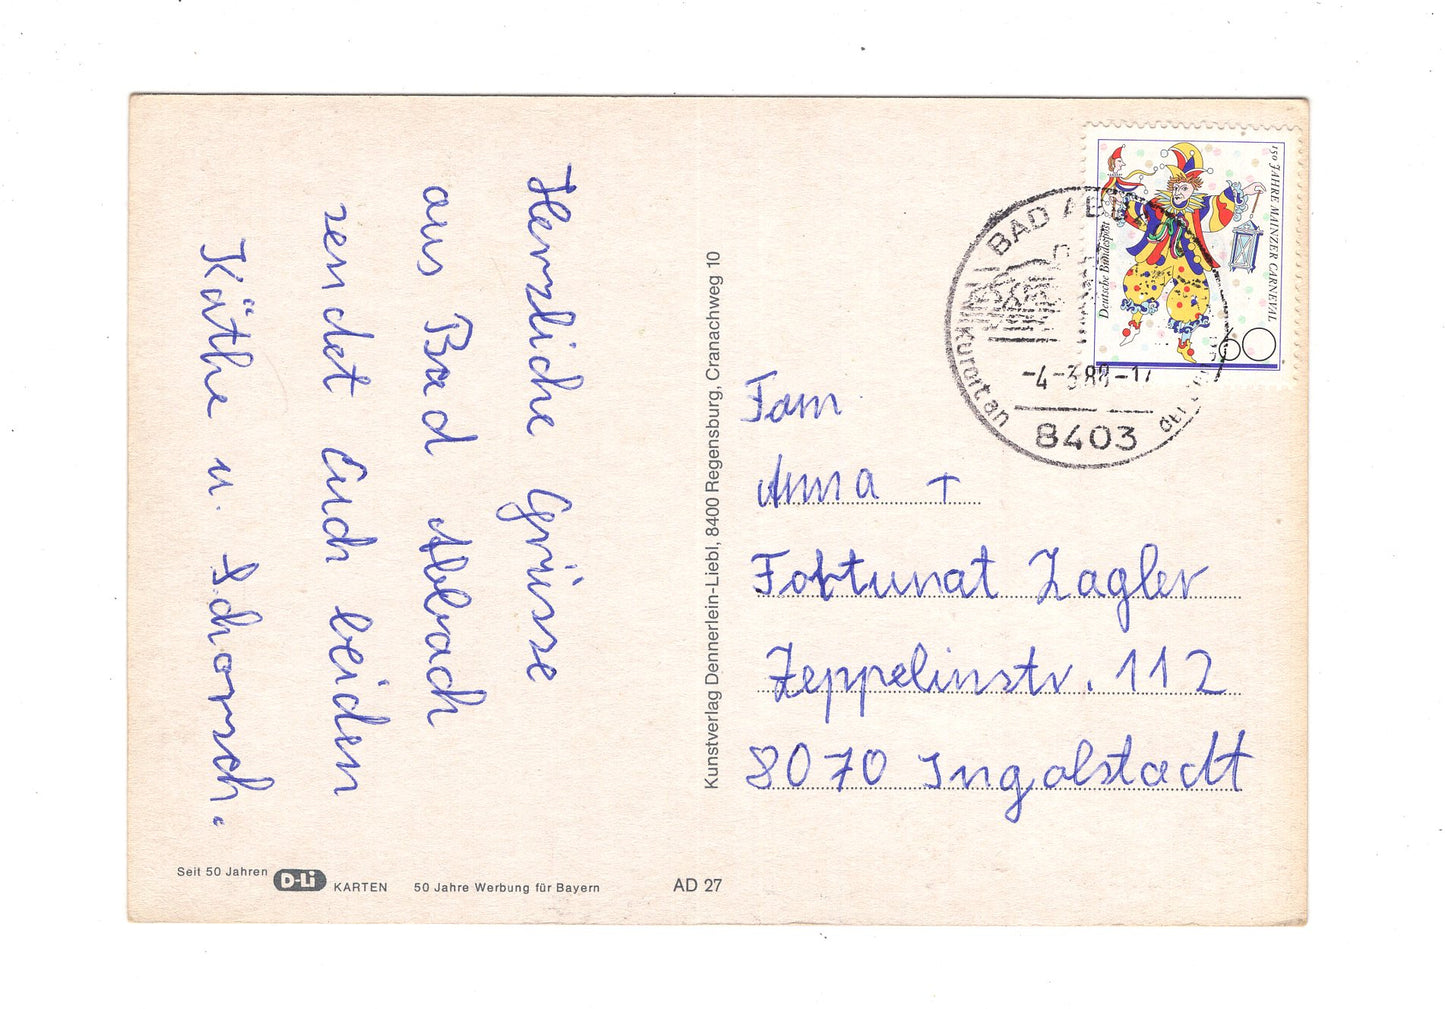 Herzliche Grüsse
aus Bad Abbach
sendet Euch beiden
Käthe u. Schorsch.
Seit 50 Jahren D-Li KARTEN 50 Jahre Werbung für Bayern
AD 27
Kunstverlag Dennerlein-Liebl, 8400 Regensburg, Cranachweg 10
150 JAHRE MAINZER CARNEVAL
Deutsche Bundespost
60
BAD ABBACH
-4-3.88-17
Kurort an der
8403
Fam.
Anna +
Fortunat Zagler
Zeppelinstr. 112
8070 Ingolstadt